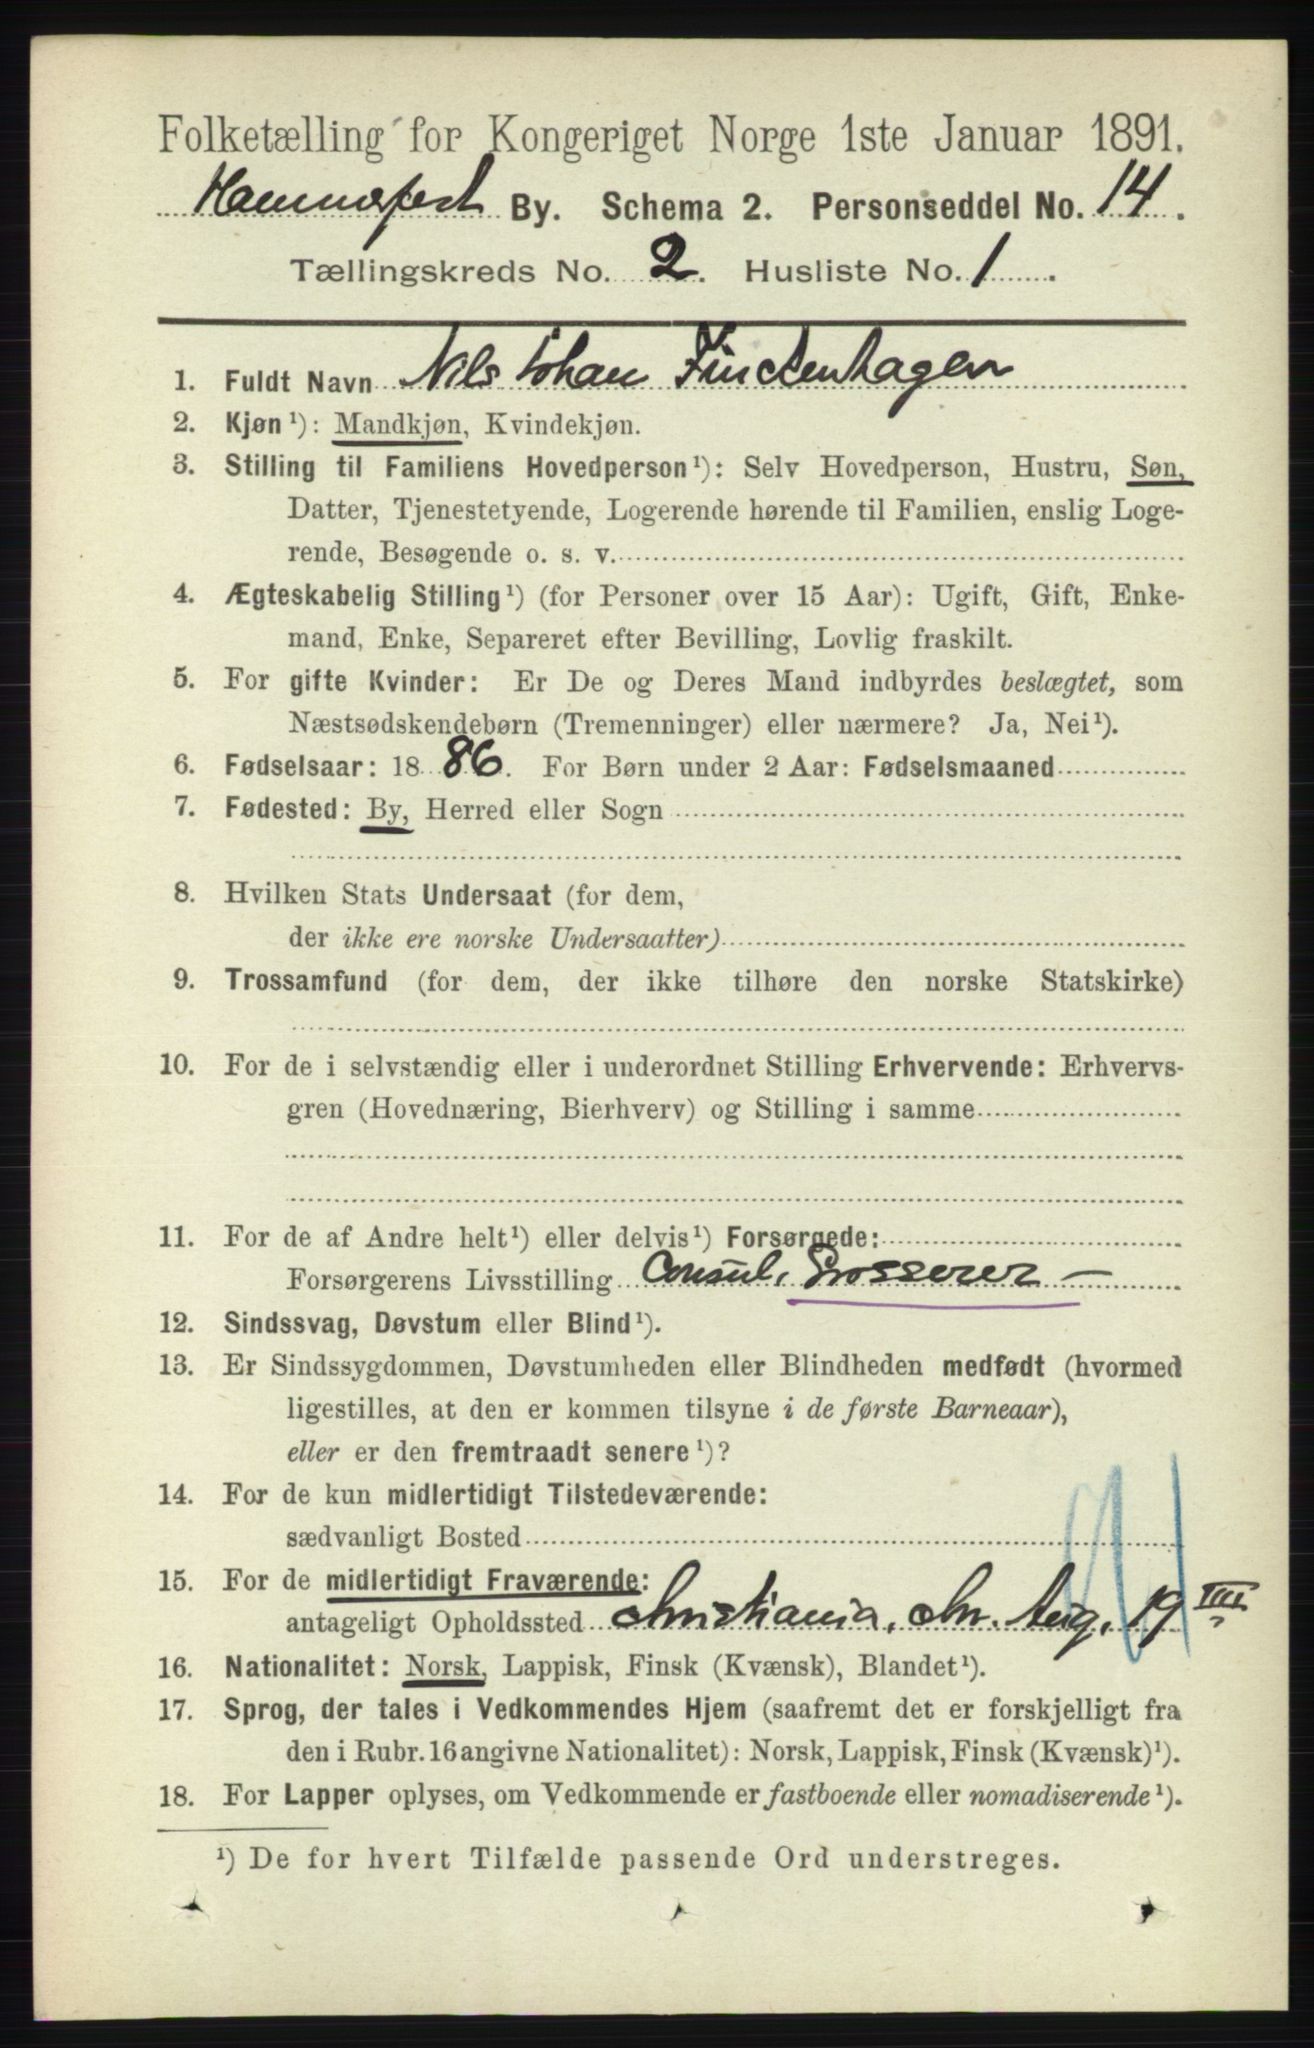 Folketælling for Kongeriget Norge 1ste Januar 1891.
Hammerfest By. Schema 2. Personseddel No. 14.
Tællingskreds No. 2. Husliste No. 1.
1. Fuldt Navn Nils Johan Finckenhagen
2. Kjøn ¹): Mandkjøn, Kvindekjøn.
3. Stilling til Familiens Hovedperson ¹): Selv Hovedperson, Hustru, Søn,
Datter, Tjenestetyende, Logerende hørende til Familien, enslig Loge-
rende, Besøgende o. s. v.
4. Ægteskabelig Stilling ¹) (for Personer over 15 Aar): Ugift, Gift, Enke-
mand, Enke, Separeret efter Bevilling, Lovlig fraskilt.
5. For gifte Kvinder: Er De og Deres Mand indbyrdes beslægtet, som
Næstsødskendebørn (Tremenninger) eller nærmere? Ja, Nei ¹).
6. Fødselsaar: 1886. For Børn under 2 Aar: Fødselsmaaned
7. Fødested: By, Herred eller Sogn
8. Hvilken Stats Undersaat (for dem,
der ikke ere norske Undersaatter)
9. Trossamfund (for dem, der ikke tilhøre den norske Statskirke)
10. For de i selvstændig eller i underordnet Stilling Erhvervende: Erhvervs-
gren (Hovednæring, Bierhverv) og Stilling i samme
11. For de af Andre helt ¹) eller delvis ¹) Forsørgede:
Forsørgerens Livsstilling Consul, Grosserer –
12. Sindssvag, Døvstum eller Blind ¹).
13. Er Sindssygdommen, Døvstumheden eller Blindheden medfødt (hvormed
ligestilles, at den er kommen tilsyne i de første Barneaar),
eller er den fremtraadt senere ¹)?
14. For de kun midlertidigt Tilstedeværende:
sædvanligt Bosted
15. For de midlertidigt Fraværende:
antageligt Opholdssted Christiania, Chr. Aug, 19 III
16. Nationalitet: Norsk, Lappisk, Finsk (Kvænsk), Blandet ¹).
17. Sprog, der tales i Vedkommendes Hjem (saafremt det er forskjelligt fra
den i Rubr. 16 angivne Nationalitet): Norsk, Lappisk, Finsk (Kvænsk) ¹).
18. For Lapper oplyses, om Vedkommende er fastboende eller nomadiserende ¹).
¹) De for hvert Tilfælde passende Ord understreges.